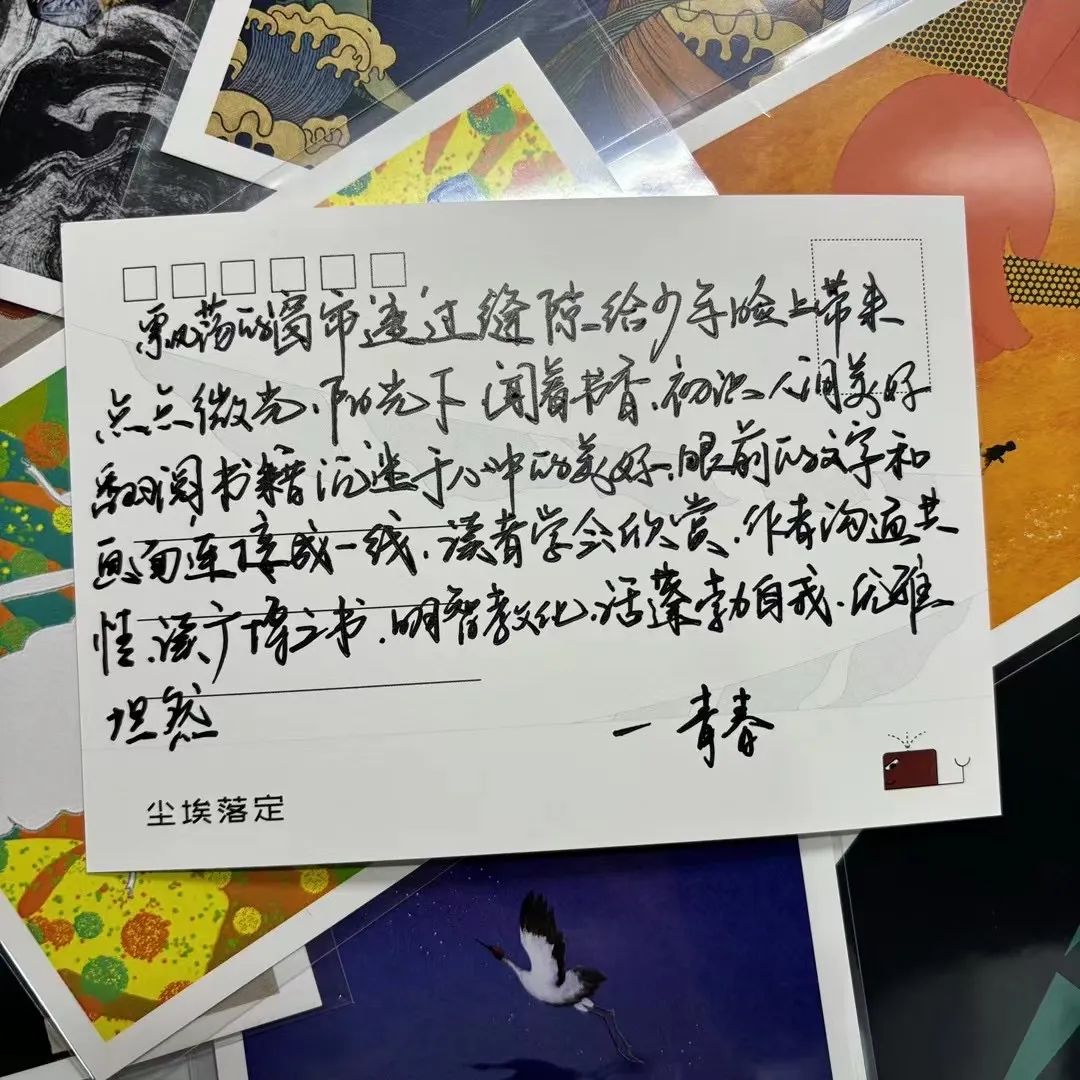 飘荡的窗帘透过缝隙给少年脸上带来
点点微光,阳光下闻着书香,初识人间美好
翻阅书籍沉迷于心中的美好,眼前的文字和
画面连接成一线,读者学会欣赏,作者沟通共
情,读广博之书,明智教化,活蓬勃自我,优雅
坦然
一青春
尘埃落定